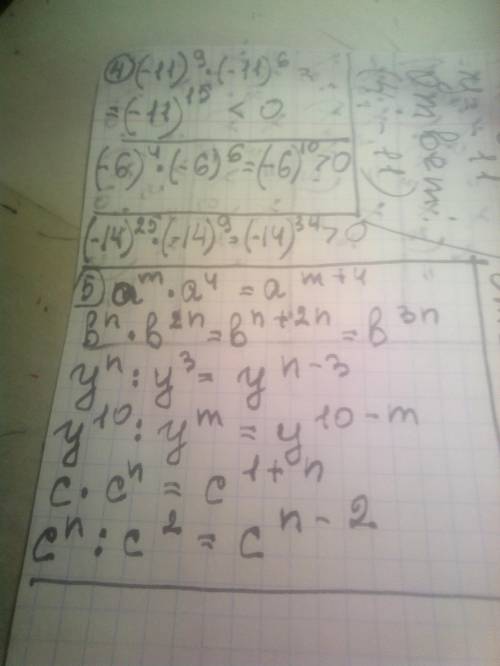 ④ (-11)⁹ · (-11)⁶ =
= (-11)¹⁵ < 0
(-6)⁴ · (-6)⁶ = (-6)¹⁰ > 0
(-14)²⁵ · (-14)⁹ = (-14)³⁴ > 0
⑤ aᵐ · a⁴ = aᵐ⁺⁴
bⁿ · b²ⁿ = bⁿ⁺²ⁿ = b³ⁿ
yⁿ : y³ = yⁿ⁻³
y¹⁰ : yᵐ = y¹⁰⁻ᵐ
c · cⁿ = c¹⁺ⁿ
cⁿ : c² = cⁿ⁻²
Ответ: